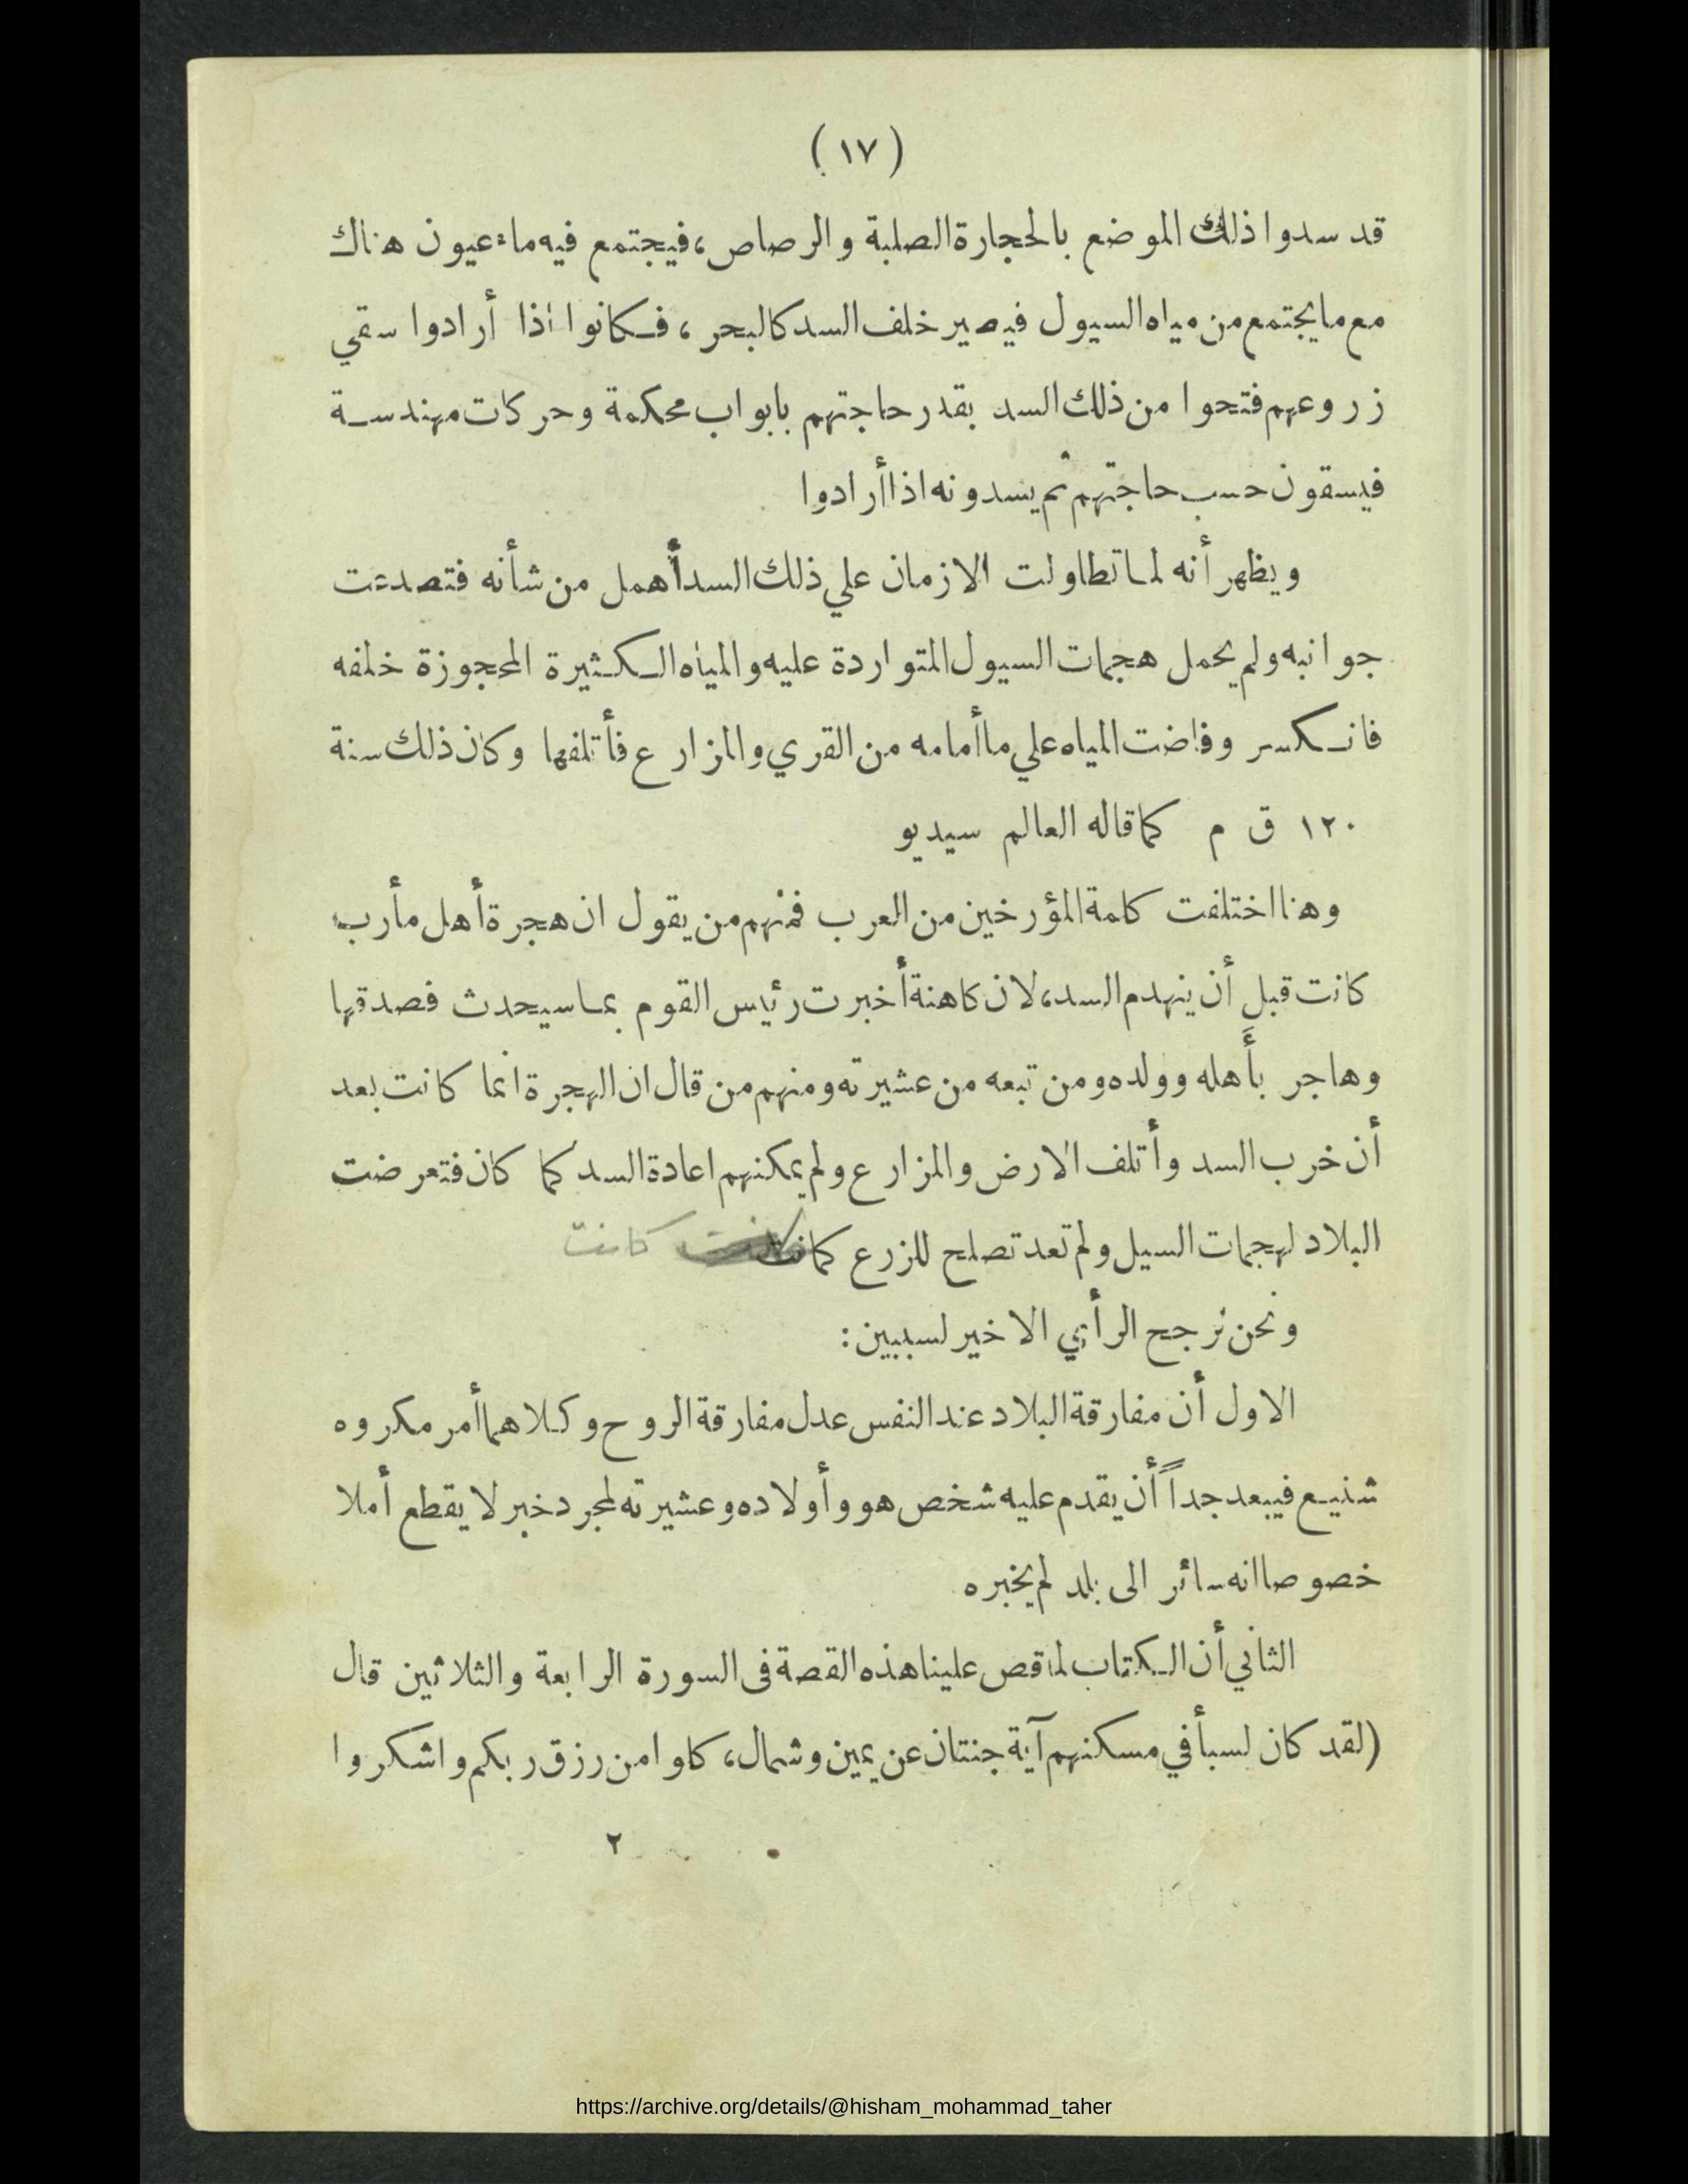 (١٧)
قد سدوا ذلك الموضع بالحجارة الصلبة والرصاص، فيجتمع فيه ماء عيون هناك
مع ما يجتمع من مياه السيول فيصير خلف السد كالبحر، فكانوا اذا أرادوا سقي
زروعهم فتحوا من ذلك السد بقدر حاجتهم بابواب محكمة وحركات مهندسة
فيسقون حسب حاجتهم ثم يسدونه اذا أرادوا
ويظهر أنه لما تطاولت الازمان علي ذلك السد أهمل من شأنه فتصدعت
جوانبه ولم يحمل هجمات السيول المتواردة عليه والمياه الكثيرة المحجوزة خلفه
فانكسر وفاضت المياه علي ما أمامه من القري والمزارع فأتلفها وكان ذلك سنة
١٢٠ ق م كما قاله العالم سيديو
وهنا اختلفت كلمة المؤرخين من العرب فمنهم من يقول ان هجرة أهل مأرب
كانت قبل أن ينهدم السد، لان كاهنة أخبرت رئيس القوم بما سيحدث فصدقها
وهاجر بأَهله وولده ومن تبعه من عشيرته ومنهم من قال ان الهجرة انما كانت بعد
أن خرب السد وأتلف الارض والمزارع ولم يمكنهم اعادة السد كما كان فتعرضت
البلاد لهجمات السيل ولم تعد تصلح للزرع كما كانت كانت
ونحن نرجح الرأي الاخير لسببين:
الاول أن مفارقة البلاد عند النفس عدل مفارقة الروح وكلاهما أمر مكروه
شنيع فيبعد جداً أن يقدم عليه شخص هو وأولاده وعشيرته لمجرد خبر لا يقطع أملا
خصوصا انه سائر الى بلد لم يخبره
الثاني أن الكتاب لما قص علينا هذه القصة فى السورة الرابعة والثلاثين قال
(لقد كان لسبأ في مسكنهم آية جنتان عن يمين وشمال، كلوا من رزق ربكم واشكروا
٢
https://archive.org/details/@hisham_mohammad_taher